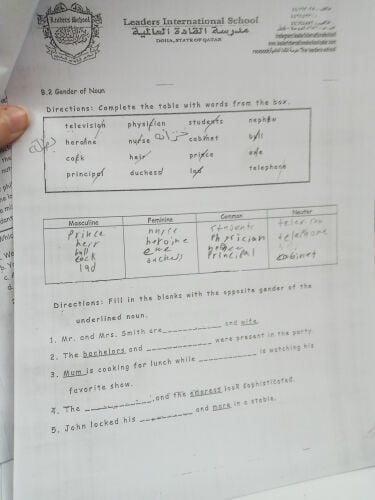 Leaders International School
مدرسة القادة العالمية
DOHA, STATE OF QATAR
B.2 Gender of Noun
Directions: Complete the table with words from the box.
television physician students nephew
heroine nurse cabinet bull
cock heir prince ewe
principal duchess lad telephone
بطلة
خزانة
Masculine Feminine Common Neuter
prince nurse students
heir heroine physician telephone
bull ewe
cock duchess principal cabinet
lad
Directions: Fill in the blanks with the opposite gender of the
underlined noun.
1. Mr. and Mrs. Smith are____________ and wife.
2. The bachelors and ____________ were present in the party.
3. Mum is cooking for lunch while ____________ is watching his
favorite show.
4. The ____________, and the empress look sophisticated.
5. John locked his ____________ and mare in a stable.